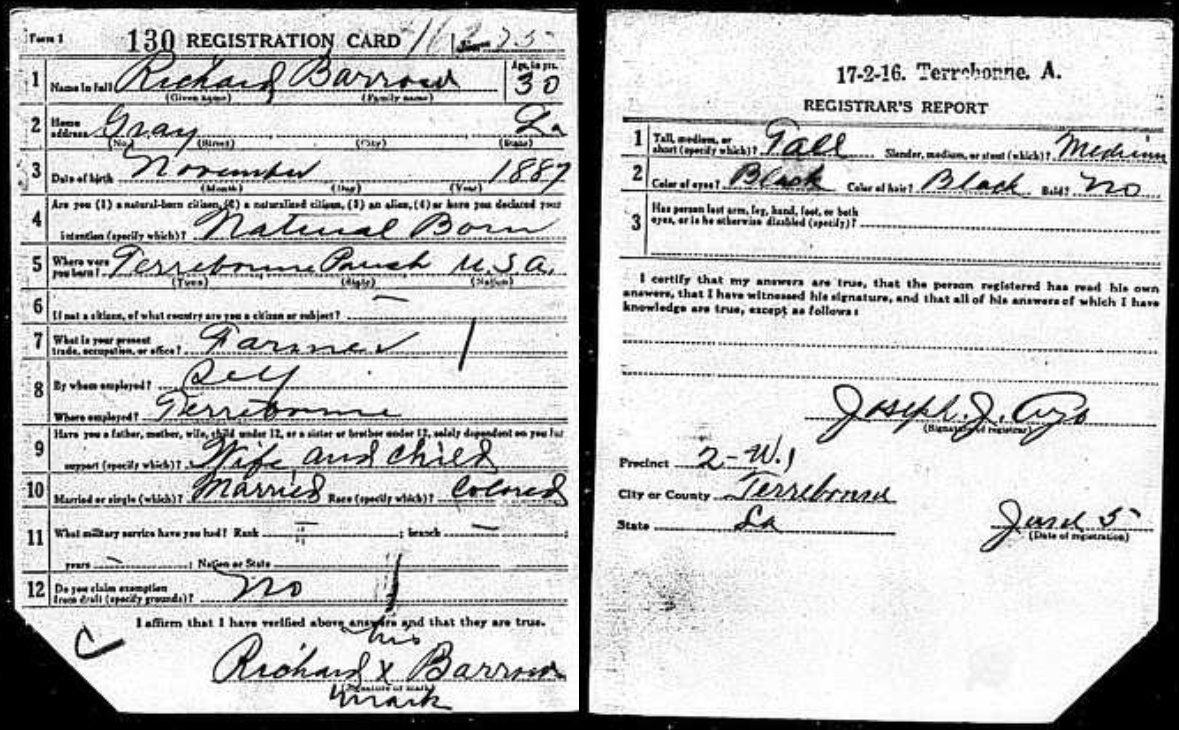 Form 1 130 REGISTRATION CARD No. 25
1 Name in full Richard Barrow Age, in yrs. 30
(Given name) (Family name)
2 Home address Gray La
(No.) (Street) (City) (State)
3 Date of birth November 1887
(Month) (Day) (Year)
4 Are you (1) a natural-born citizen, (2) a naturalized citizen, (3) an alien, (4) or have you declared your
intention (specify which)? Natural Born
5 Where were you born? Terrebonne Parish U.S.A.
(Town) (State) (Nation)
6 If not a citizen, of what country are you a citizen or subject? —
7 What is your present trade, occupation, or office? Farmer
8 By whom employed? Self
Where employed? Terrebonne
9 Have you a father, mother, wife, child under 12, or a sister or brother under 12, solely dependent on you for
support (specify which)? Wife and child
10 Married or single (which)? Married Race (specify which)? Colored
11 What military service have you had? Rank — ; branch — ;
years — ; Nation or State
12 Do you claim exemption from draft (specify grounds)? No
I affirm that I have verified above answers and that they are true.
his
Richard X Barrow
(Signature or mark)
mark
C
17-2-16. Terrebonne. A.
REGISTRAR'S REPORT
1 Tall, medium, or short (specify which)? Tall Slender, medium, or stout (which)? Medium
2 Color of eyes? Black Color of hair? Black Bald? No
3 Has person lost arm, leg, hand, foot, or both
eyes, or is he otherwise disabled (specify)?
I certify that my answers are true, that the person registered has read his own
answers, that I have witnessed his signature, and that all of his answers of which I have
knowledge are true, except as follows:
Joseph. J.
(Signature of registrar)
Precinct 2-W.1
City or County Terrebonne
State La
June 5
(Date of registration)